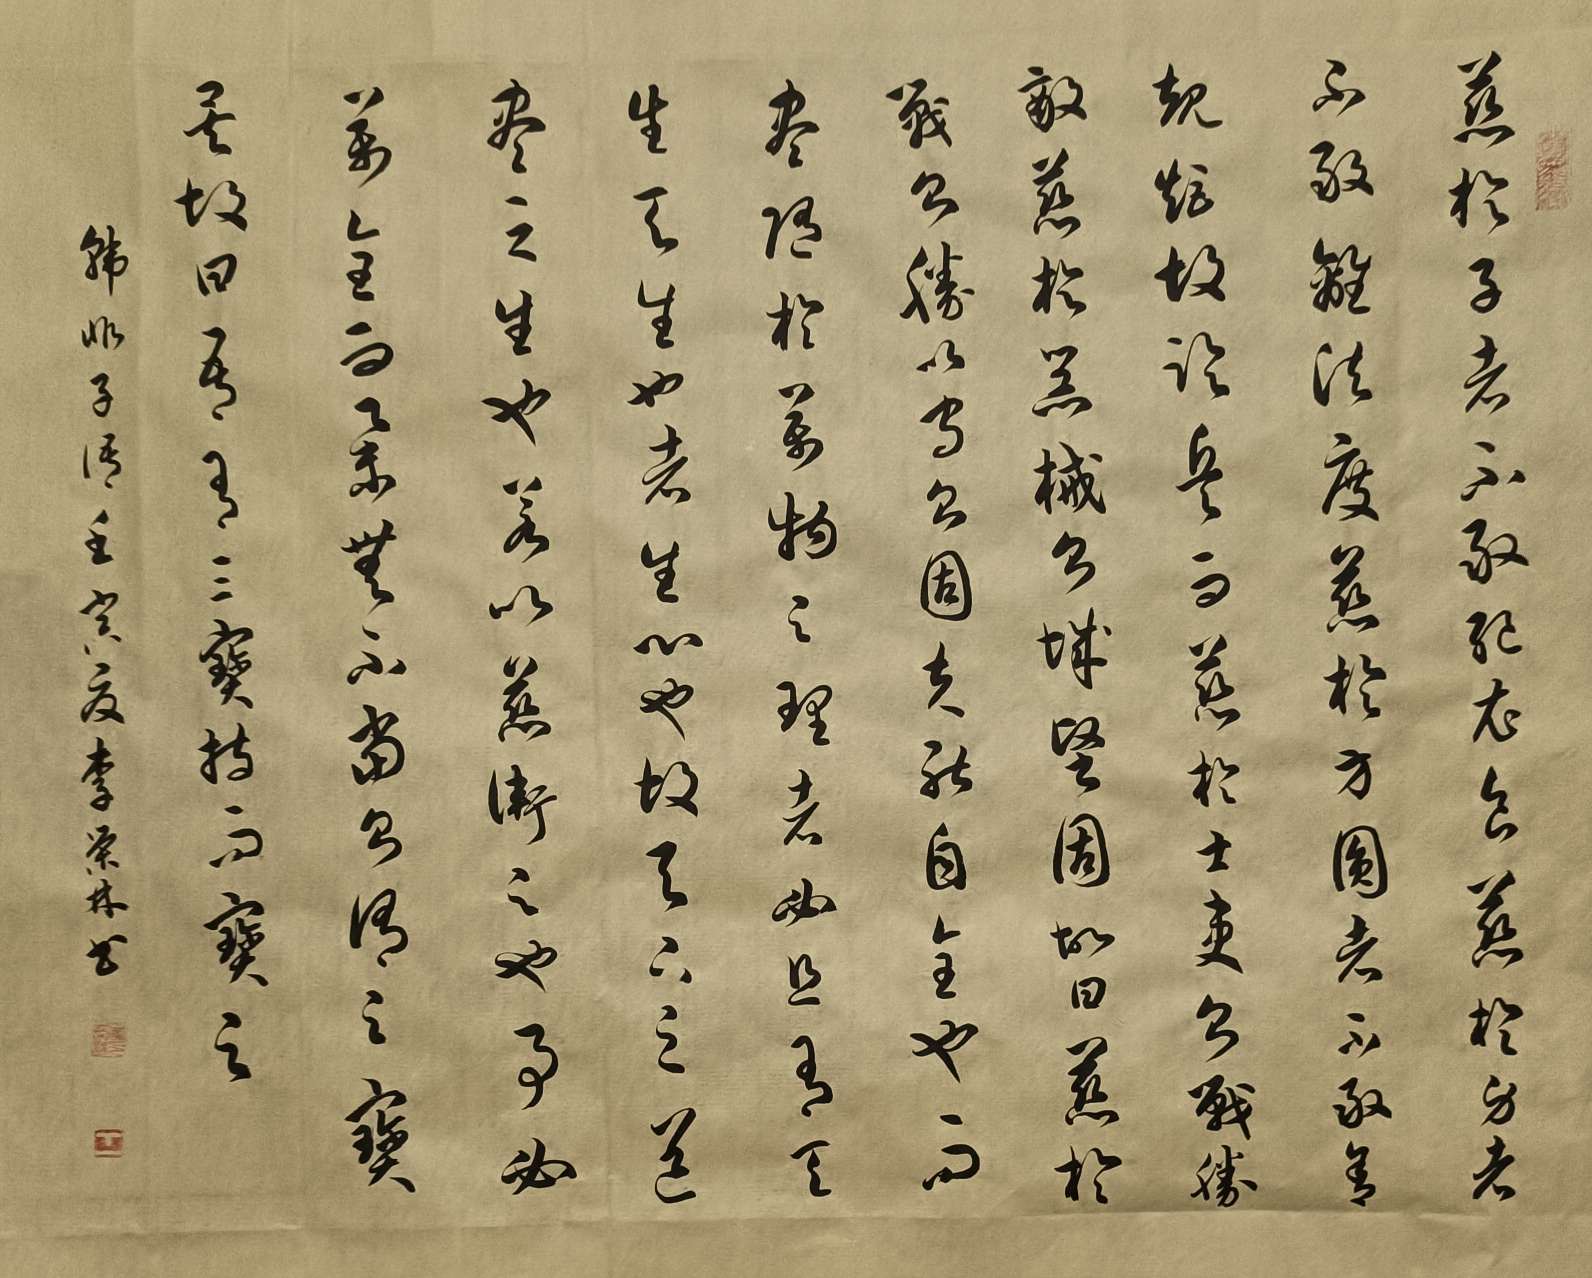 慈於子者不敢絕衣食慈於身者
不敢離法度慈於方圓者不敢舍
規矩故臨兵而慈於士吏則戰勝
敵慈於器械則城堅固故曰慈於
戰則勝以守則固夫能自全也而
盡隨於萬物之理者必且有天
生天生也者生心也故天下之道
盡之生也若以慈衛之也事必
萬全而舉無不當則謂之寶
矣故曰吾有三寶持而寶之
韓非子語壬寅夏李榮林書